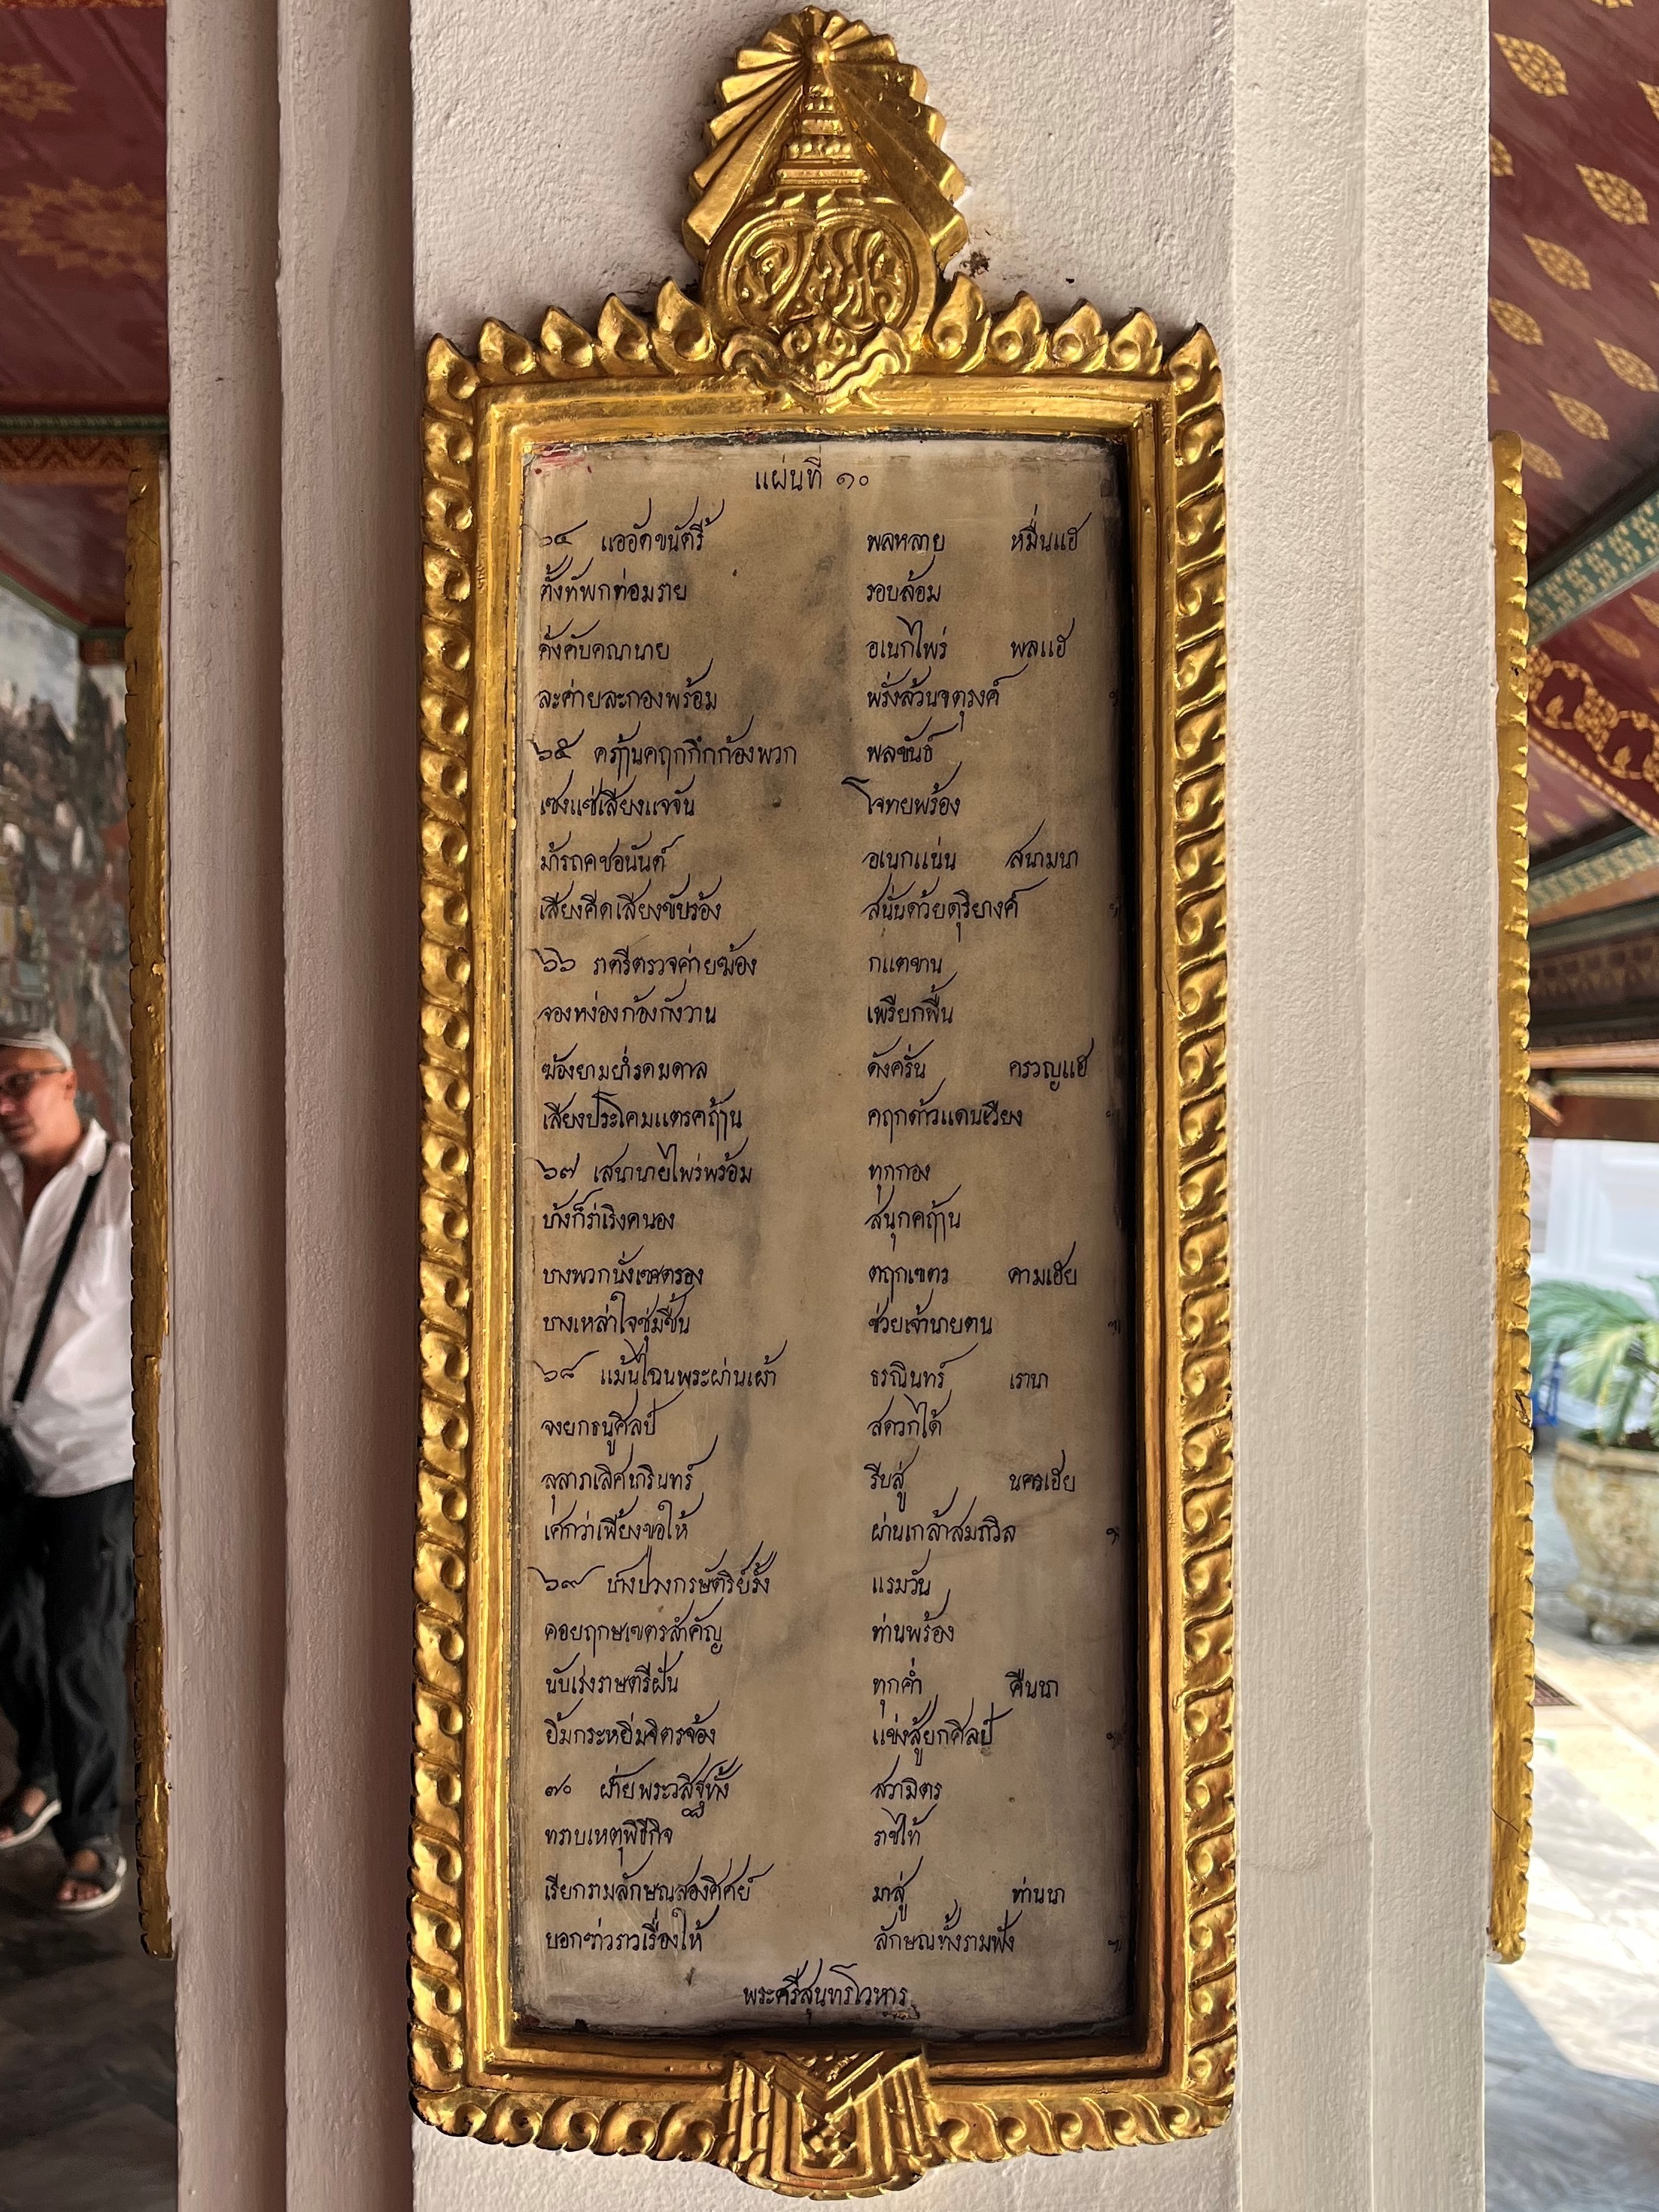 แผ่นที่ ๑๐
๖๔ แออัดขนัดรี้ พลหลาย หมื่นแฮ
ตั้งทัพกท่อมราย รอบล้อม
คั่งคับคณานาย อเนกไพร่ พลแฮ
ละค่ายละกองพร้อม พรั่งล้วนจตุรงค์ ฯ
๖๕ คฤ้านคฤกกึกก้องพวก พลขันธ์
เซงแซ่เสียงแจจัน โจทยพร้อง
ม้ารถคชอนันต์ อเนกแน่น สนามนา
เสียงดีดเสียงขับร้อง สนั่นด้วยดุริยางค์ ฯ
๖๖ ราตรีตรวจค่ายฆ้อง กแตขาน
จองหง่องก้องกังวาน เพรียกพื้น
ฆ้องยามย่ำรดมดาล ดังครั่น ครวญแฮ
เสียงประโคมแตรคฤ้าน คฤกด้าวแดนเวียง ฯ
๖๗ เสนานายไพร่พร้อม ทุกกอง
บ้างก็ร่าเริงคนอง สนุกคฤ้าน
บางพวกนั่งเซศตรอง ตฤกเขตร คามเฮย
บางเหล่าใจชุ่มชื้น ช่วยเจ้านายตน ฯ
๖๘ แม้นไฉนพระผ่านเผ้า ธรณินทร์ เรานา
จงยกธนูศิลป์ สดวกได้
ลุลาภเลิศนรินทร์ รีบสู่ นครเฮย
เศกว่าเพี้ยงขอให้ ผ่านเกล้าสมถวิล ฯ
๖๙ ปางปวงกรษัตริย์รั้ง แรมวัน
คอยฤกษเขตรสำคัญ ท่านพร้อง
นับเร่งราษตรีฝัน ทุกค่ำ คืนนา
ยิ้มกระหยิ่มจิตรจ้อง แข่งสู้ยกศิลป์ ฯ
๗๐ ฝ่ายพระวสิฐทั้ง สวามิตร
ทราบเหตุพิธีกิจ ราชไท้
เรียกรามลักษณสองศิศย์ มาสู่ ท่านนา
บอกข่าวราวเรื่องให้ ลักษณทั้งรามฟัง ฯ
พระศรีสุนทรโวหาร